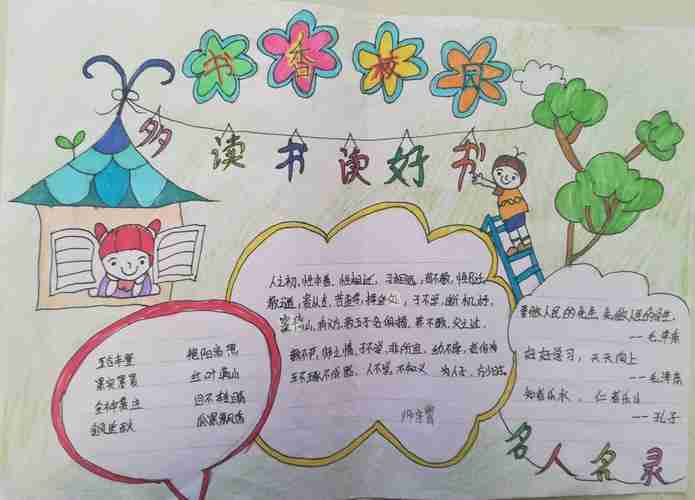 书香校园
多读书读好书
人之初,性本善,性相近,习相远,苟不教,性乃迁
教之道,贵以专,昔孟母,择邻处,子不学,断机杼,
窦燕山,有义方,教五子名俱扬,养不教,父之过,
教不严,师之惰,子不学,非所宜,幼不学,老何为
玉不琢不成器,人不学,不知义,为人子,方少时
五谷丰登
果实累累
金秋
艳阳高照
红叶满山
瓜果飘香
要做人民的先生 先做人民的学生
——毛泽东
好好学习,天天向上
——毛泽东
知者乐水,仁者乐山
——孔子
名人名录